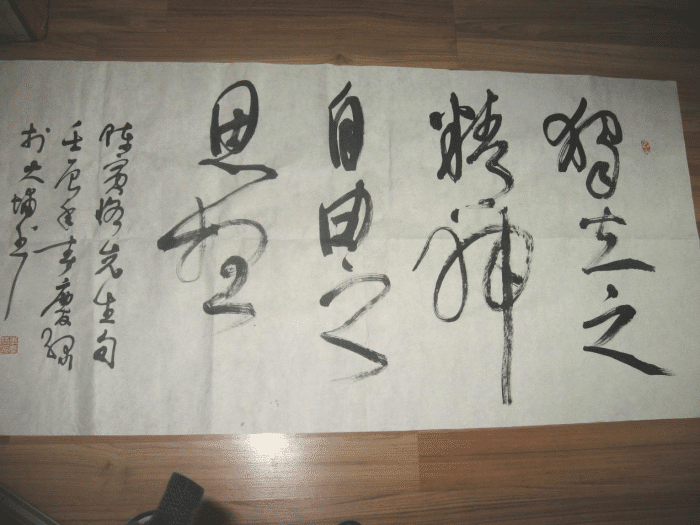 獨立之
精神
自由之
思想
陈寅恪先生句
壬辰年李慶禄
於大埔書